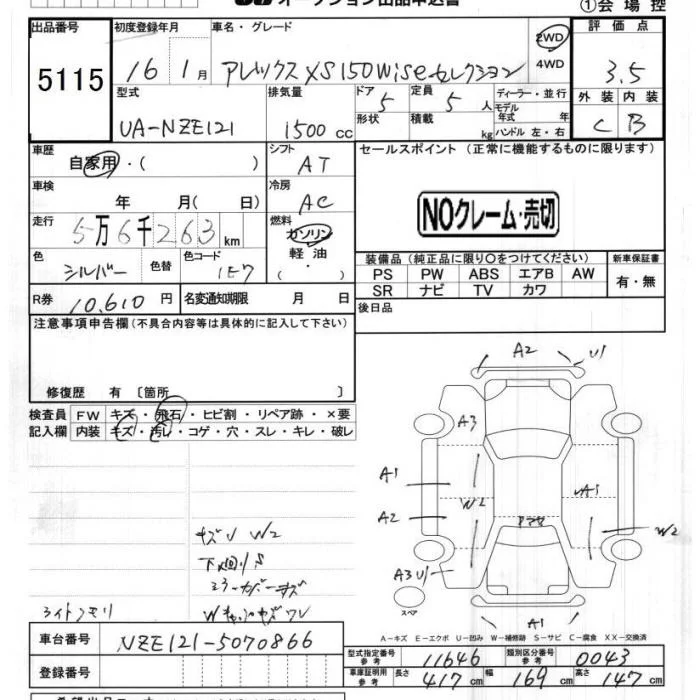 オークション出品申込書
①会場控
出品番号
5115
初度登録年月
16 1月
車名・グレード
アレックス XS150 Wiseセレクション
2WD
4WD
評価点
3.5
型式
UA-NZE121
排気量
1500 cc
ドア
5
形状
定員
5 人
積載
kg
ディーラー・並行
モデル年式 年
ハンドル 左・右
外装 内装
C B
車歴
自家用・( )
シフト
AT
セールスポイント(正常に機能するものに限ります)
車検
年 月( 日)
冷房
AC
NOクレーム・売切
走行
5万6千263 km
燃料
ガソリン
軽油
( ・ )
色
シルバー
色替
色コード
1E7
装備品(純正品に限り○をつけてください)
PS PW ABS エアB AW
SR ナビ TV カワ
新車保証書
有・無
R券
10,610 円
名変通知期限 月 日
後日品
注意事項申告欄(不具合内容等は具体的に記入して下さい)
修復歴 有 〔箇所 〕
検査員 記入欄
FW キズ・飛石・ヒビ割・リペア跡・×要
内装 キズ・汚レ・コゲ・穴・スレ・キレ・破レ
A2 U1
A3
A1
A2
W2
A1
W2
A3 U1
A1
スペア
キズU W2
下廻りS
ミラーカバーキズ
ライトクモリ
A-キズ E-エクボ U-凹み W-補修跡 S-サビ C-腐食 XX-交換済
車台番号
NZE121-5070866
登録番号
型式指定番号 参考
11646
類別区分番号 参考
0043
車庫証明用 参考
長さ 417 cm 幅 169 cm 高さ 147 cm